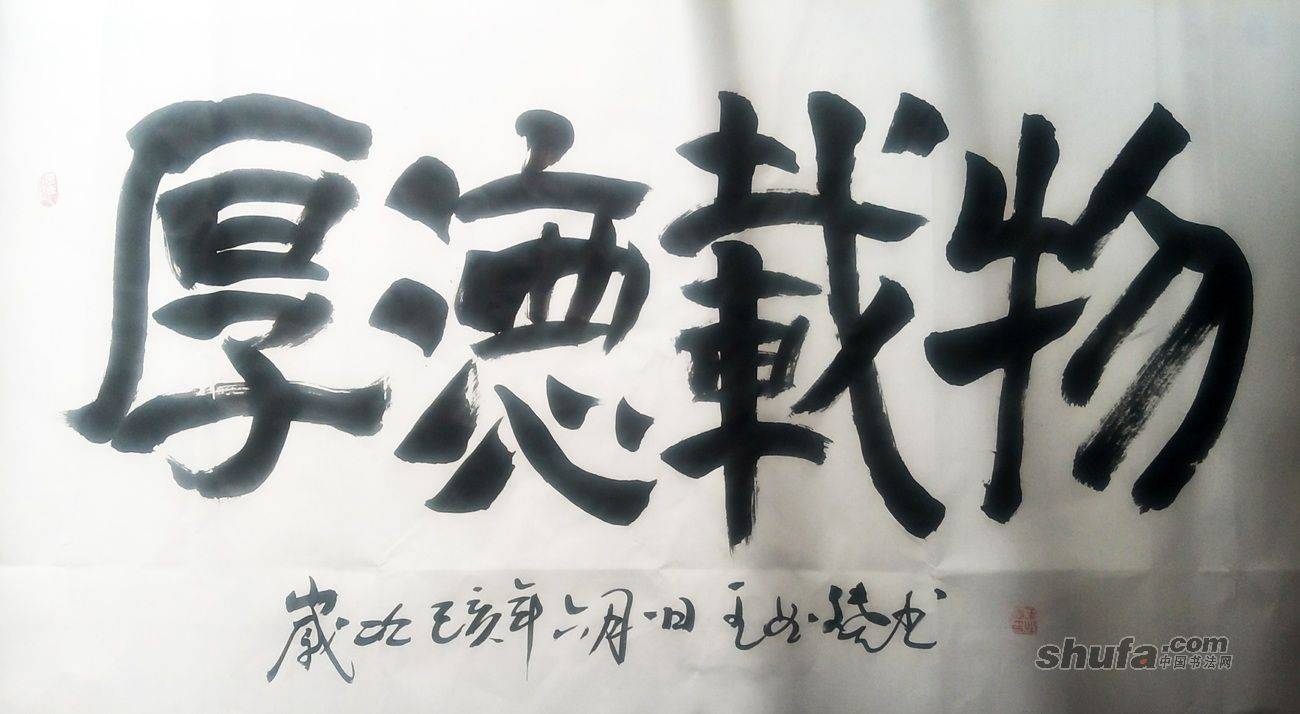 厚德載物
歲次己亥年六月一日 王 书
shufa.com
中国书法网